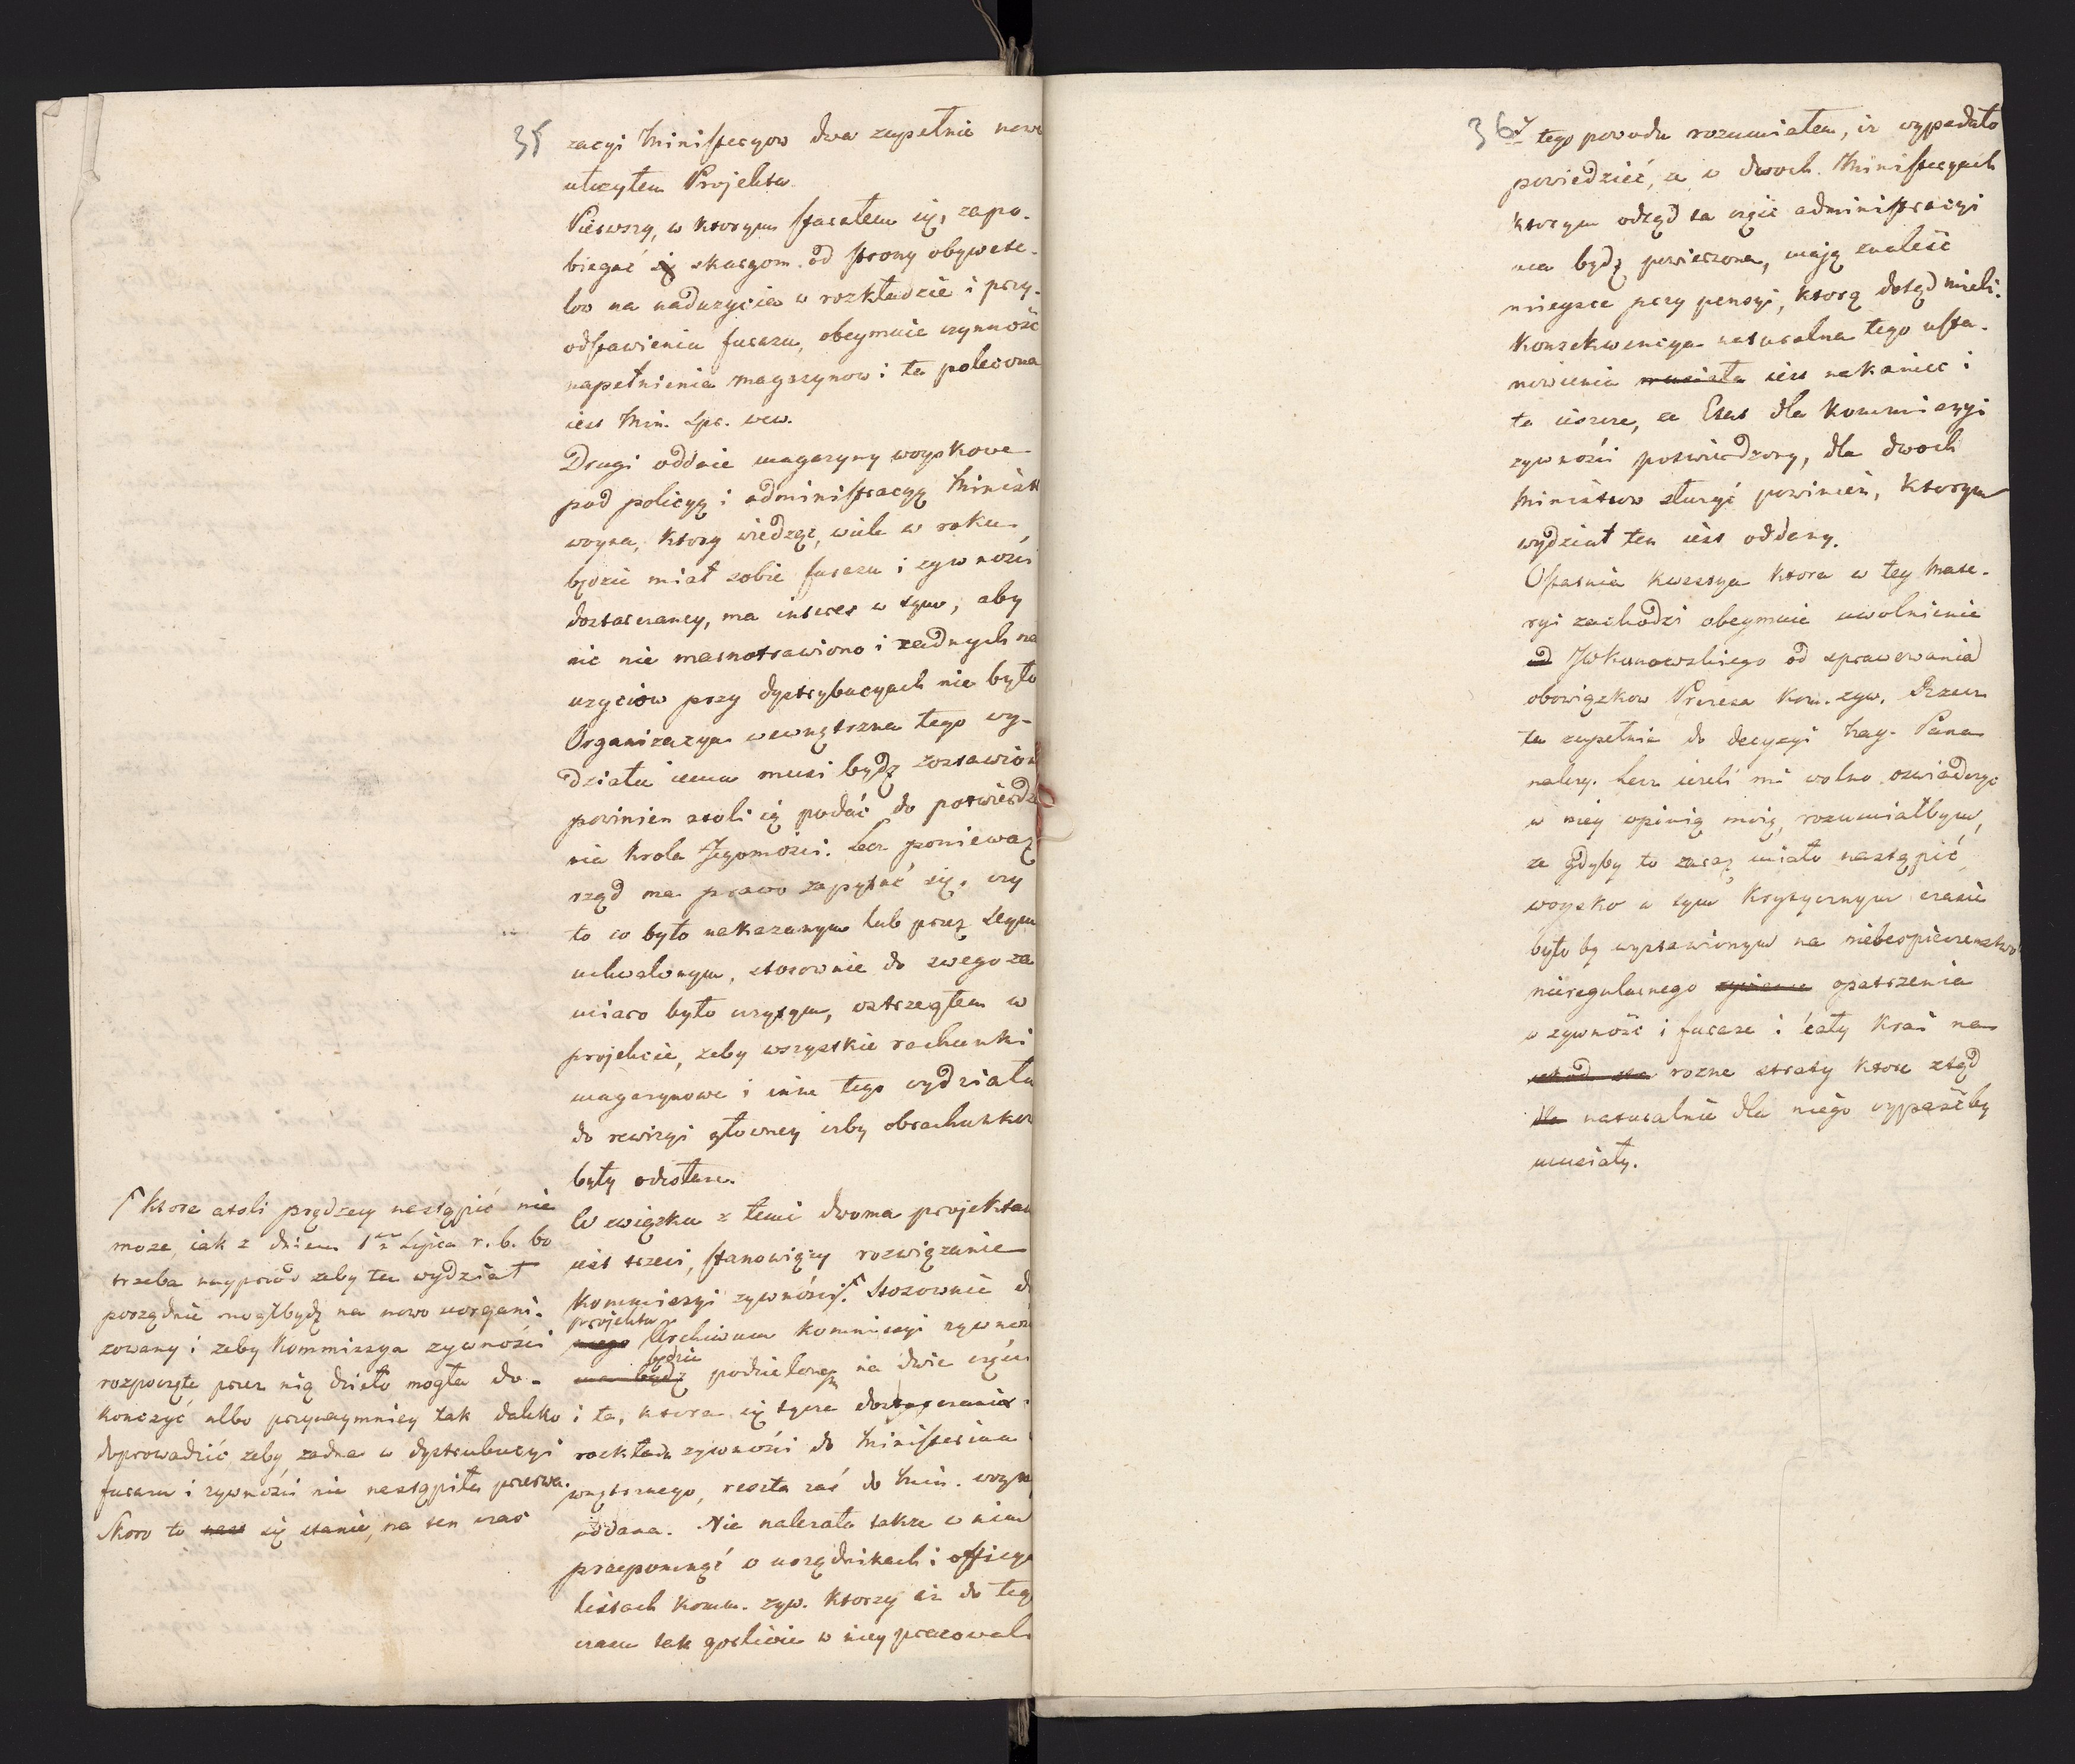 35
zacyi Ministeryow dwa zupełnie nowe
ułożyłem Projekta
Pierwszy, w ktorym starałem się, zapo-
biegać się skargom od strony obywate-
low na nadużycia w rozkładzie i przy-
odstawieniu furażu, obeymuie czynność
napełnienia magazynow i ta polecona
iest Min. Spr. wew.
Drugi oddaie magazyny woyskowe
pod policyą i administracyą Ministr
woyna, ktory wiedząc, wiele w roku
będzie miał sobie furażu i żywności
dostarczaney, ma interes w tym, aby
nic nie marnotrawiono i żadnych na
użyciow przy dystrybucyach nie było
Organizacya wewnętrzna tego wy-
działu iemu musi bydź zostawion
powinien atoli ią podać do potwierdze
nia Krola Jegomości. Lecz ponieważ
rząd ma prawo zapytać się, czy
to co było nakazanym lub przez Seym
uchwalonym, stosownie do swego za
miaro było użytym, ostrzegłem w
projekcie, żeby wszystkie rachunki
magazynowe i inne tego wydziału
do rewizyi głowney izby obrachunkow
były odesłane.
W związku z temi dwoma projektam
iest trzeci, stanowiący rozwiązanie
Kommissyi żywności. Stosownie do
projektu
niego Archiwum Kommissyi żywnos
będzie
ma bydź podzielonem na dwie częśc
i ta, ktora się tycze dostarczania i
rozkładu żywności do Ministerium
wnętrznego, reszta zaś do Min. woyn
oddana. Nie należało także w nim
przepomnąć o urzędnikach i officya
listach Komm. żyw. ktorzy aż do teg
czasu tak gorliwie w niey pracowali
ktore atoli prędzey nastąpić nie
może, iak z dniem 1m Lipca r. b. bo
trzeba naypriod żeby ten wydział
porządnie mogł bydź na nowo uorgani-
zowany i żeby Kommissya żywności
rozpoczęte przez nią dzieło mogła do-
kończyć albo przynaymniey tak daleko
doprowadzić żeby żadna w dystrubucyi
furażu i żywności nie nastąpiła przerwa.
Skoro to się stanie, na ten czas
36
Z tego powodu rozumiałem, iż wypadało
powiedzieć, że w dwoch Ministeryach
ktorym odtąd ta część administracyi
ma bydź powierzona, maią znaleść
mieysce przy pensyi, ktorą dotąd mieli.
Konsekwencya naturalna tego usta-
nowienia musiała iest nakoniec i
ta ieszcze, że Etat dla Kommissyi
żywności potwierdzony, dla dwoch
Ministrow służyć powinien, ktorym
wydział ten iest oddany.
Ostatnia kwestya ktora w tey Mate-
ryi zachodzi obeymuie uwolnienie
od JW Kunowskiego od sprawowania
obowiązkow Prezesa Kom. żyw. Rzecz
ta zupełnie do decyzyi Nay. Pana
należy. Lecz ieżeli mi wolno oświadczyć
w niey opinią moią, rozumiałbym,
że gdyby to zaraz miało nastąpić,
woysko w tym krytycznym czasie
było by wystawionym na niebespieczenstwo
nieregularnego opatrzenia
w żywność i furaże i cały Kray na
rozne straty ktore ztąd
dla naturalnie dla niego wypaśćby
musiały.